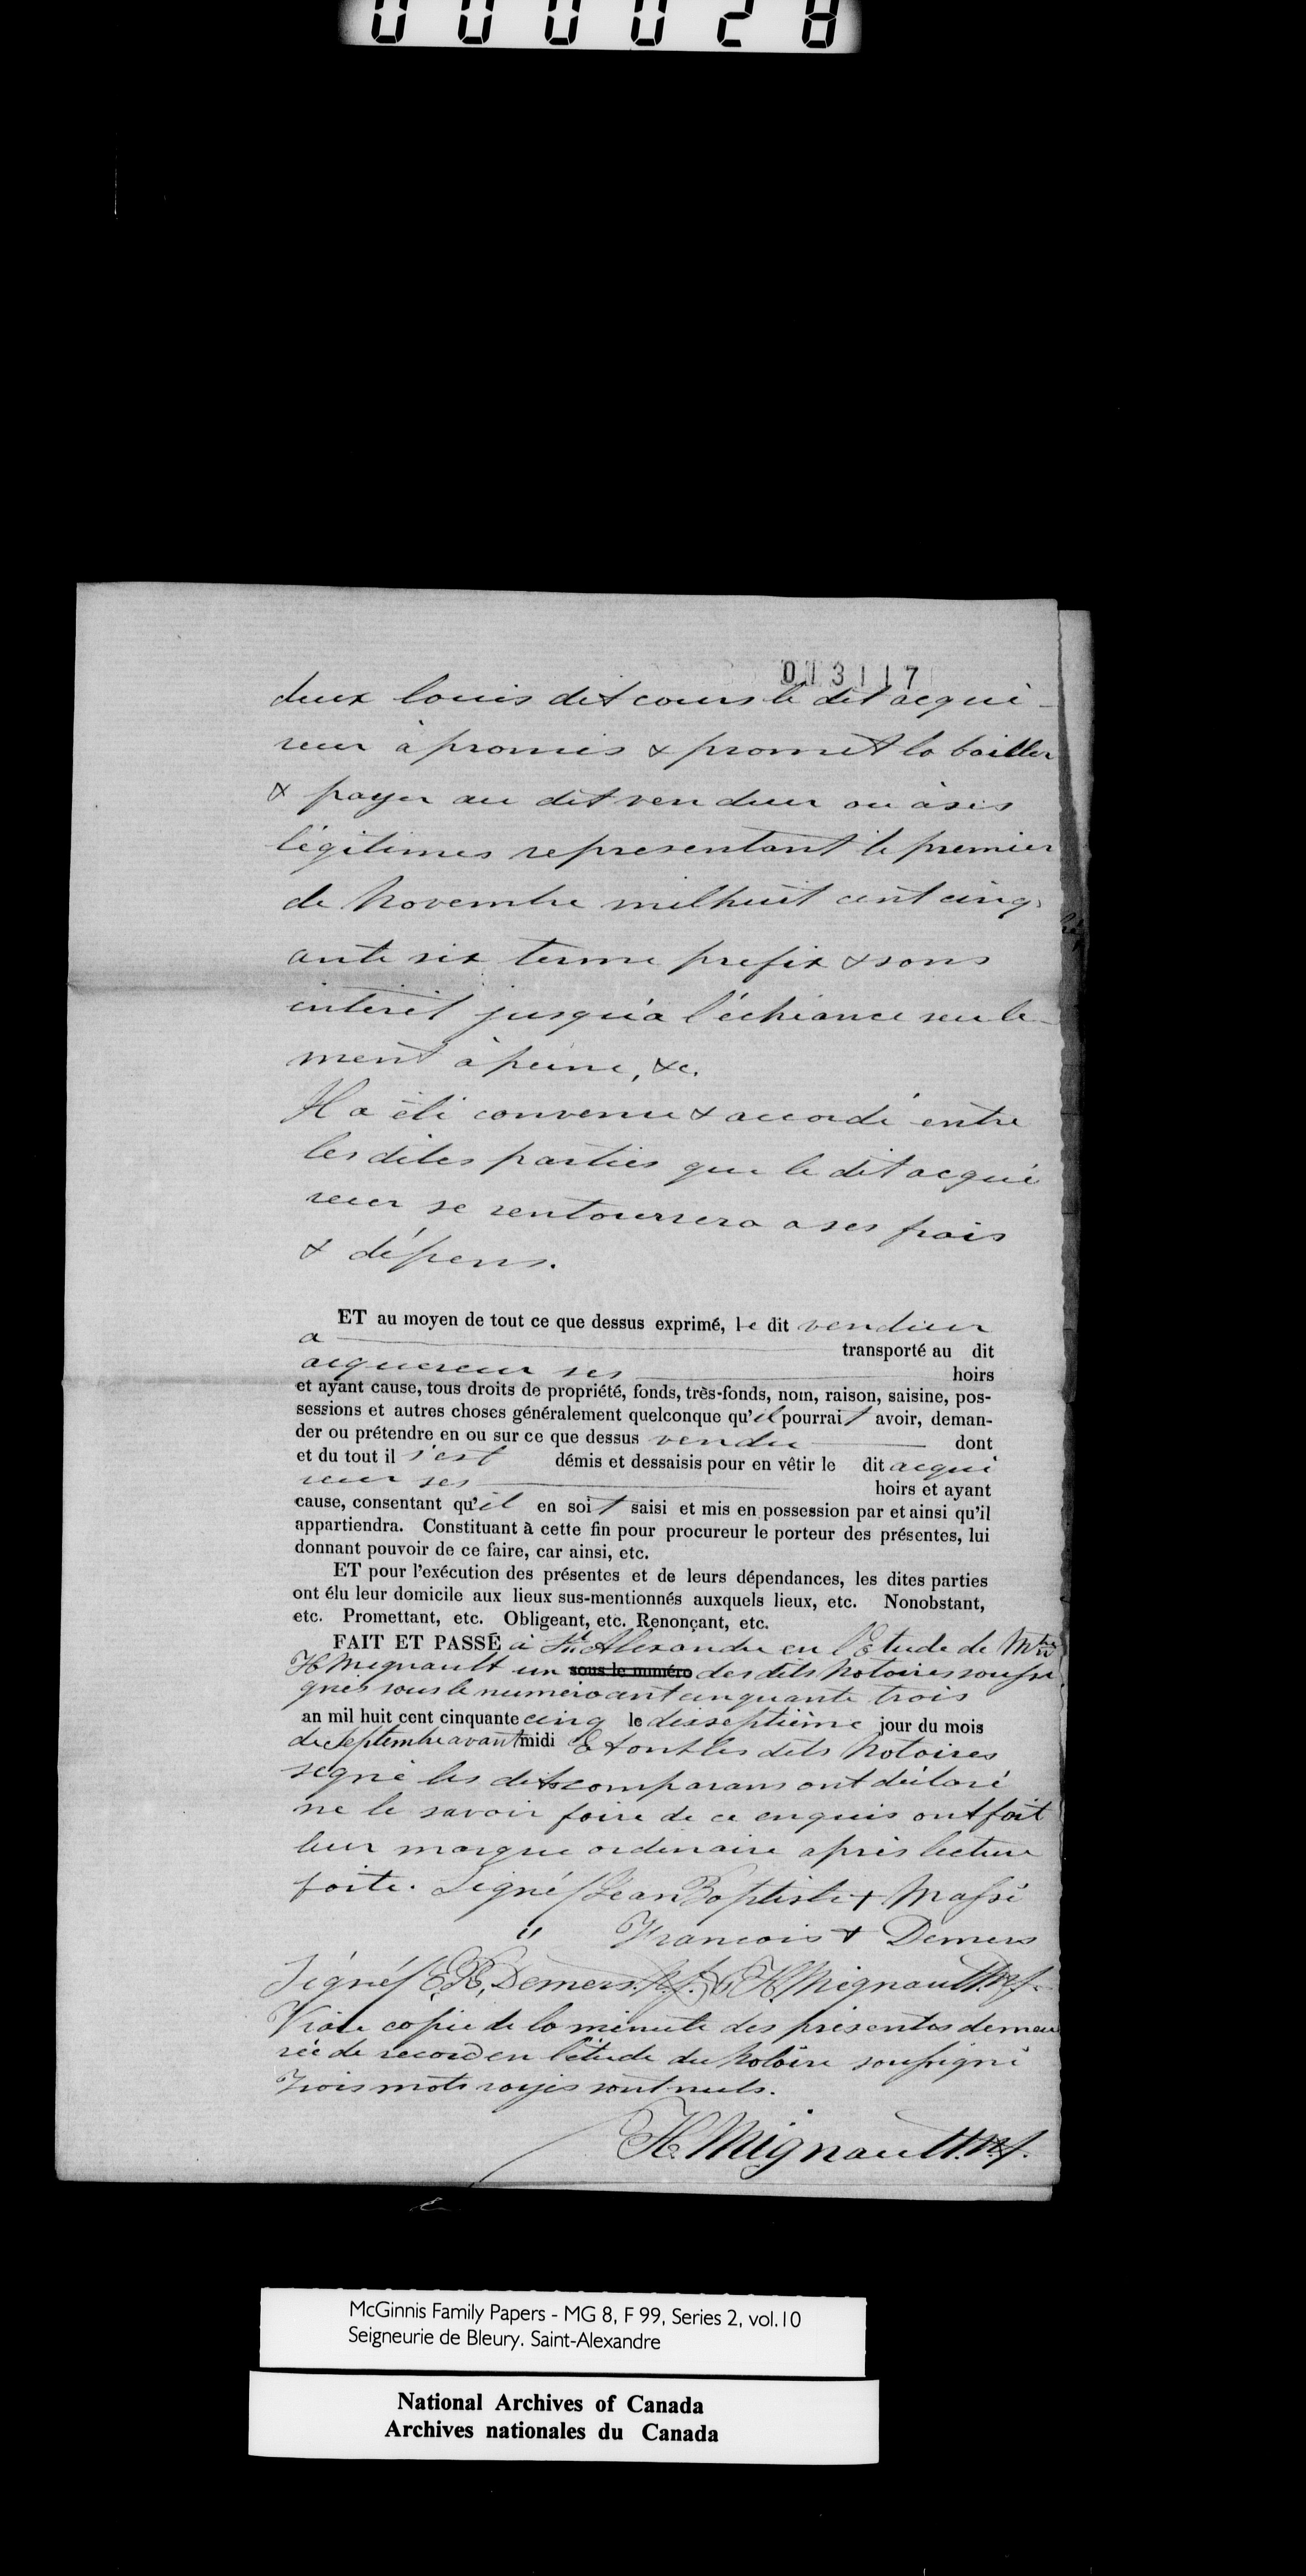 000028
013117
deux louis dit cours le dit acqué-
reur a promis & promet la bailler
& payer au dit vendeur ou à ses
légitimes representant le premier
de Novembre mil huit cent cinq-
ante six terme prefix & sans
intérêt jusqu'a l'écheance seule-
ment à peine, &c.
Il a été convenu & accordé entre
les dites parties que le dit acqué
reur se rentoursera a ses frais
& dépens.
ET au moyen de tout ce que dessus exprimé, le dit vendeur
a transporté au dit
acquereur ses hoirs
et ayant cause, tous droits de propriété, fonds, très-fonds, nom, raison, saisine, pos-
sessions et autres choses généralement quelconque qu'il pourrait avoir, deman-
der ou prétendre en ou sur ce que dessus vendu dont
et du tout il s'est démis et dessaisis pour en vêtir le dit acqué
reur ses hoirs et ayant
cause, consentant qu'il en soit saisi et mis en possession par et ainsi qu'il
appartiendra. Constituant à cette fin pour procureur le porteur des présentes, lui
donnant pouvoir de ce faire, car ainsi, etc.
ET pour l'exécution des présentes et de leurs dépendances, les dites parties
ont élu leur domicile aux lieux sus-mentionnés auxquels lieux, etc. Nonobstant,
etc. Promettant, etc. Obligeant, etc. Renonçant, etc.
FAIT ET PASSÉ à St Alexandre en l'Etude de Mtre
H Mignault un sous le numéro des dits Notaires soussi
gnés sous le numero cent cinquante trois
an mil huit cent cinquante cinq le dixseptième jour du mois
de Septembre avant midi Et ont les dits Notaires
signé les dits comparans ont déclaré
ne le savoir faire de ce enquis ont fait
leur marque ordinaire après lecture
faite. Signé/ Jean Baptiste + Massé
" Francois + Demers
Signé/ E.R. Demers. N.P. & H. Mignault N.P.
Vraie copie de la minute des présentes demeu
rée de record en l'étude du Notaire soussigné
Trois mots rayés sont nuls.
H. Mignault. N.P.
McGinnis Family Papers - MG 8, F 99, Series 2, vol.10
Seigneurie de Bleury. Saint-Alexandre
National Archives of Canada
Archives nationales du Canada